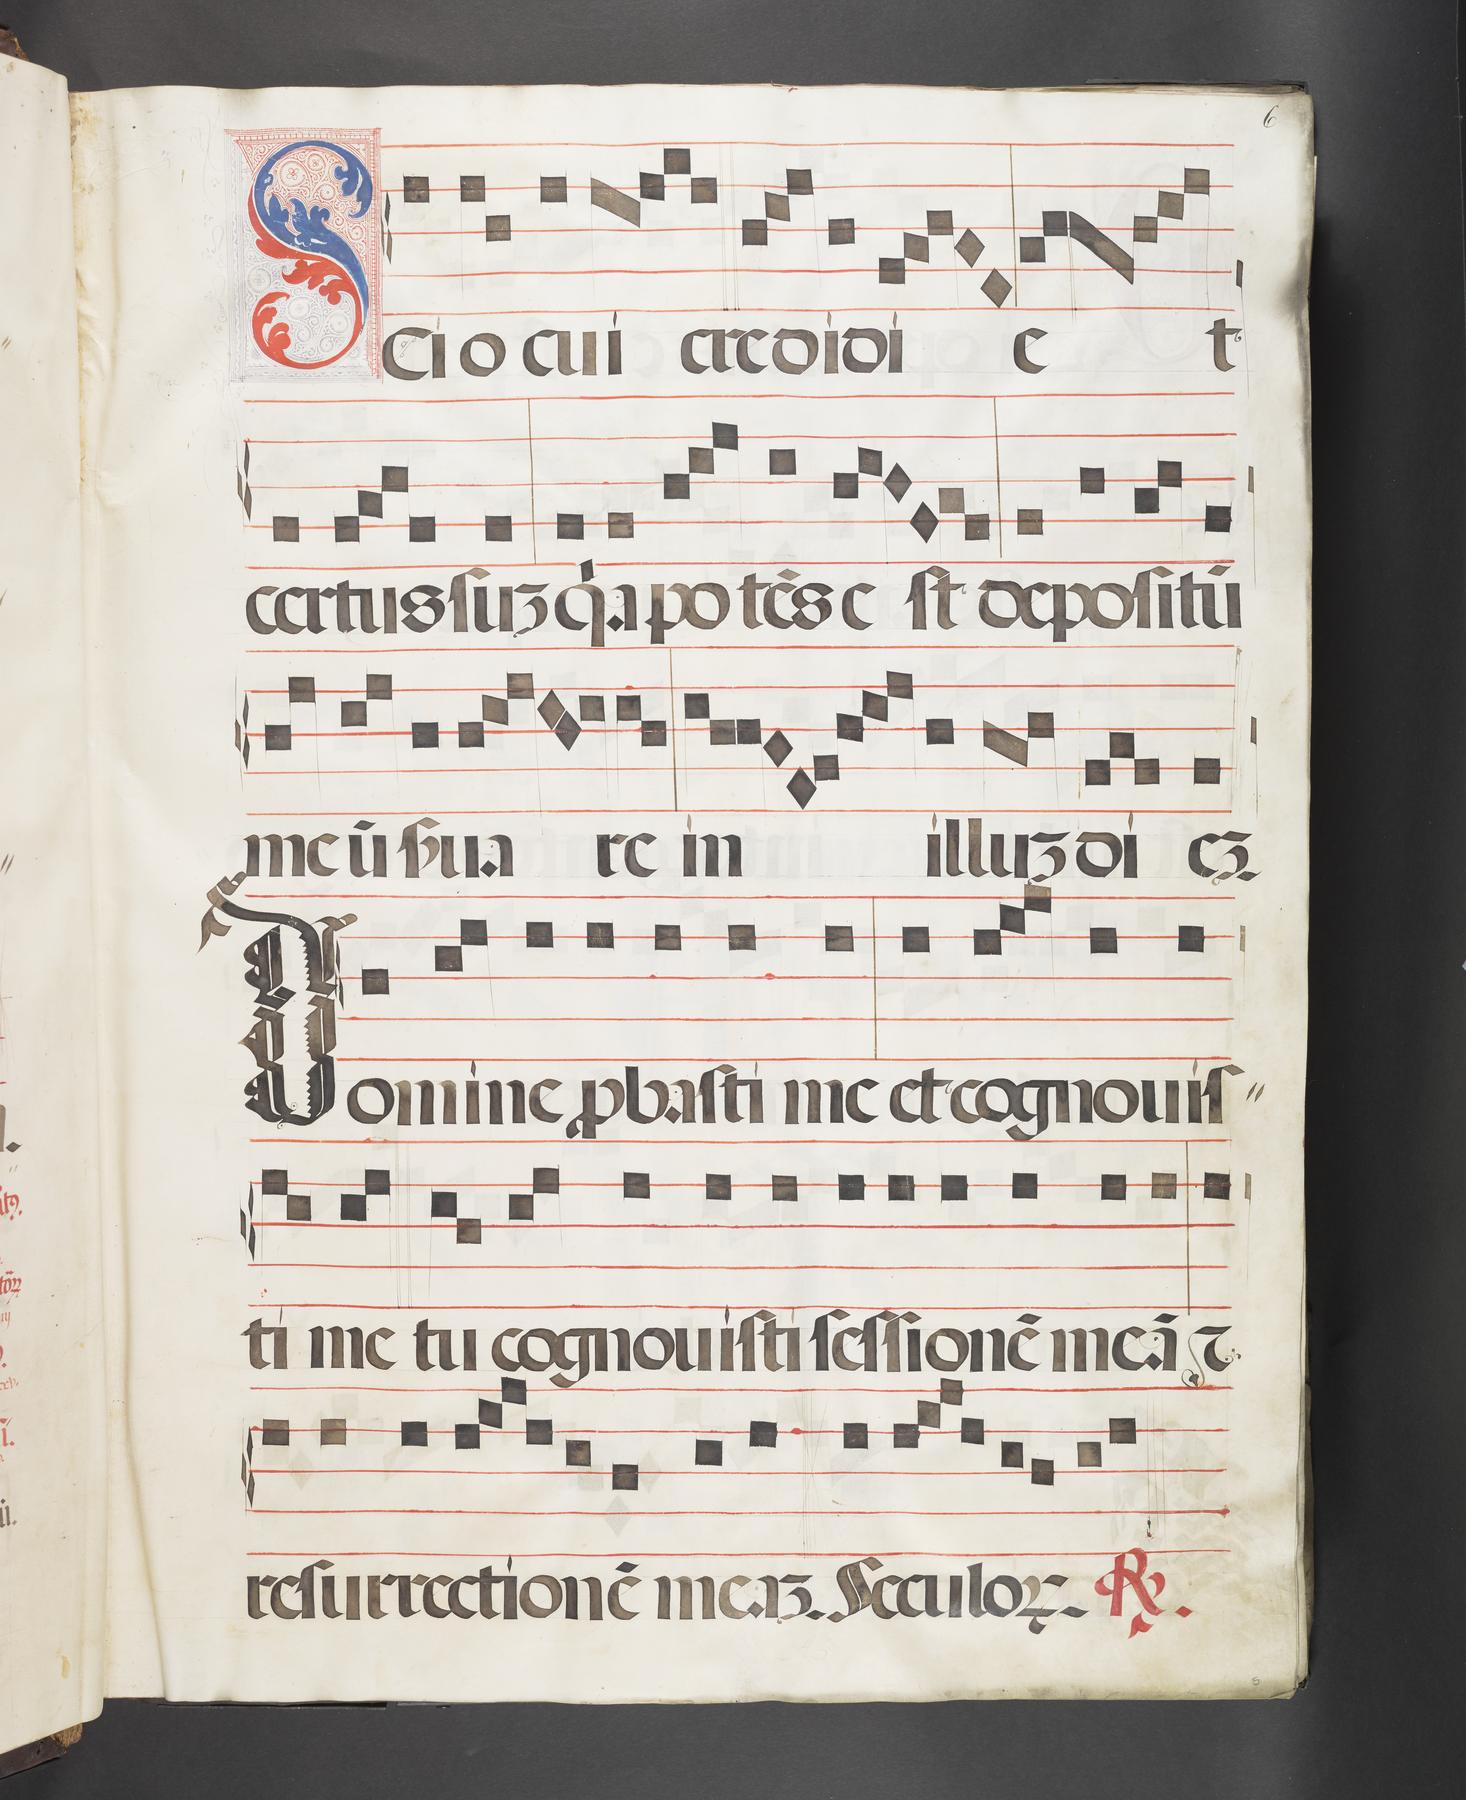 6
Scio cui credidi et
certus suz q̇a potēs est depositū
meū serua re in illuz di ez.
Domine ꝓbasti me et cognouis〃
ti me tu cognouisti sessionē meā ⁊
resurrectionē meaz. Seculoꝝ. ℟.